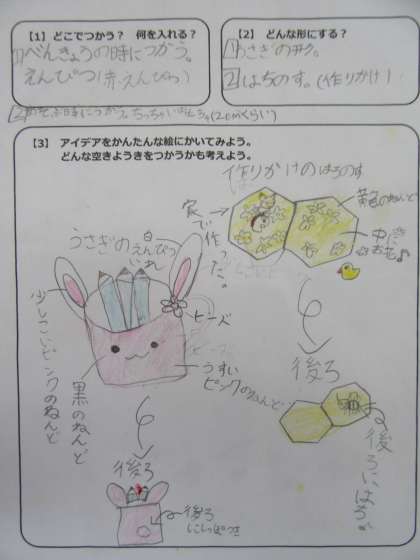 【1】どこでつかう? 何を入れる?
1 べんきょうの時につかう。
えんぴつ(赤えんぴつ)
2 あそぶ時につかう。ちっちゃいおもちゃ(2cmくらい)
【2】どんな形にする?
1 うさぎの形。
2 はちのす。(作りかけ)
【3】アイデアをかんたんな絵にかいてみよう。
どんな空きようきをつかうかも考えよう。
作りかけのはちのす
黄色のねんど
中に
お花♪
家で作った。
うさぎの
えんぴつ
いれ
白
ビーズ
少しこいピンクのねんど
黒のねんど
うすい
ピンクのねんど
後ろ
後ろにはち
後ろ
後ろ
にしっぽつき